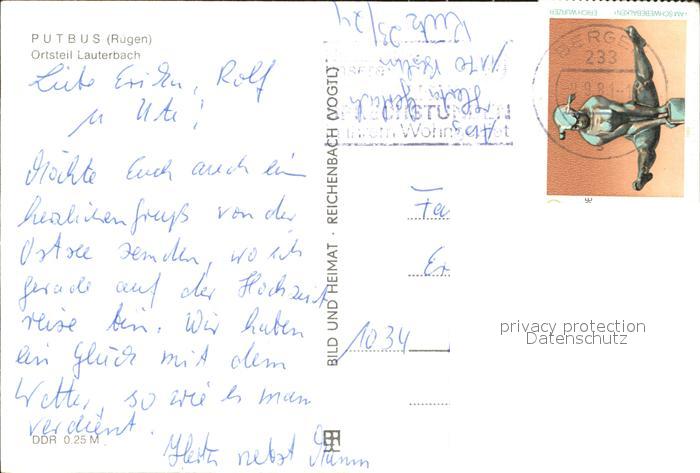 PUTBUS (Rügen)
Ortsteil Lauterbach
Liebe Erika, Rolf
u Ute!
Möchte Euch auch ein
herzlichen Gruß von der
Ostsee senden, wo ich
gerade auf der Hochzeit
reise bin. Wir haben
ein Glück mit dem
Wetter, so wie es man
verdient.
Herta nebst Mann
DDR 0.25 M
BILD UND HEIMAT · REICHENBACH (VOGTL)
Abs.
1170 Berlin
»AM SCHWEBEBALKEN« ERICH WURZER
BERGEN
233
Fa
Er
1034
privacy protection
Datenschutz